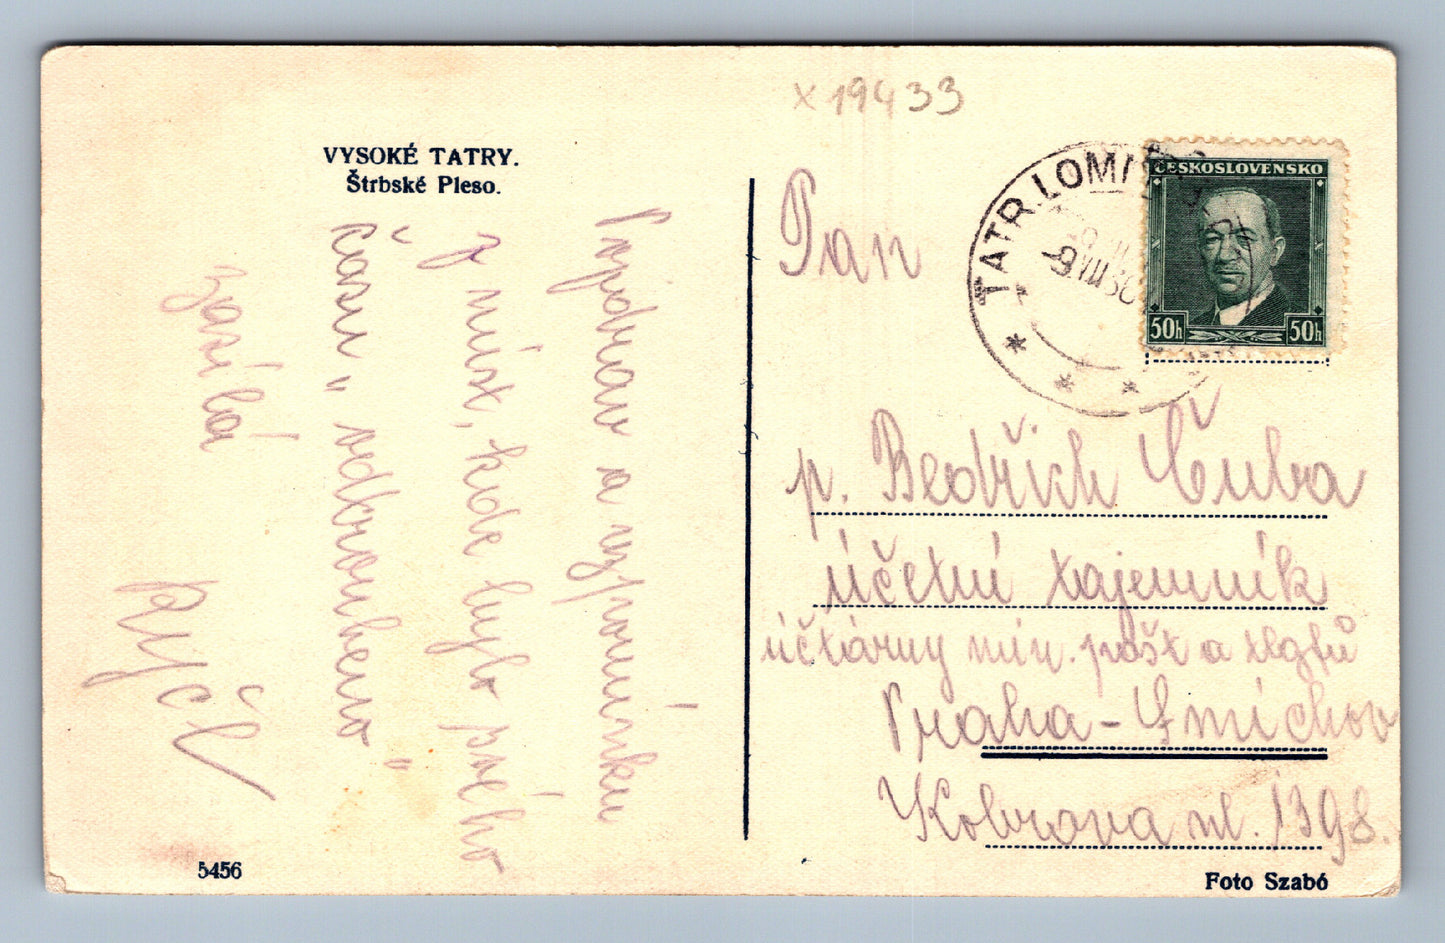 x 19433
VYSOKÉ TATRY.
Štrbské Pleso.
Pozdrav a vzpomínku
z míst, kde bylo psého
času „odkrouheno"
zasílá
TATR. LOMNI
9 VIII 36
ČESKOSLOVENSKO
50h 50h
Pan
p. Bedřich Čuba
účetní tajemník
účtárny min. pošt a tlgfů
Praha - Smíchov
Kobrova ul. 1398.
5456
Foto Szabó